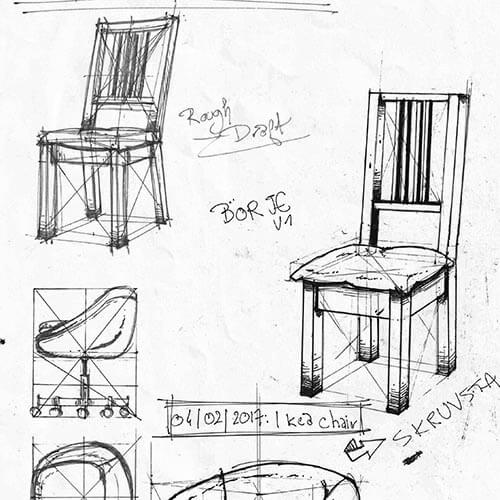 Rough
Draft
BÖRJE
V1
04/02/2017. Ikea chair
SKRUVSTA